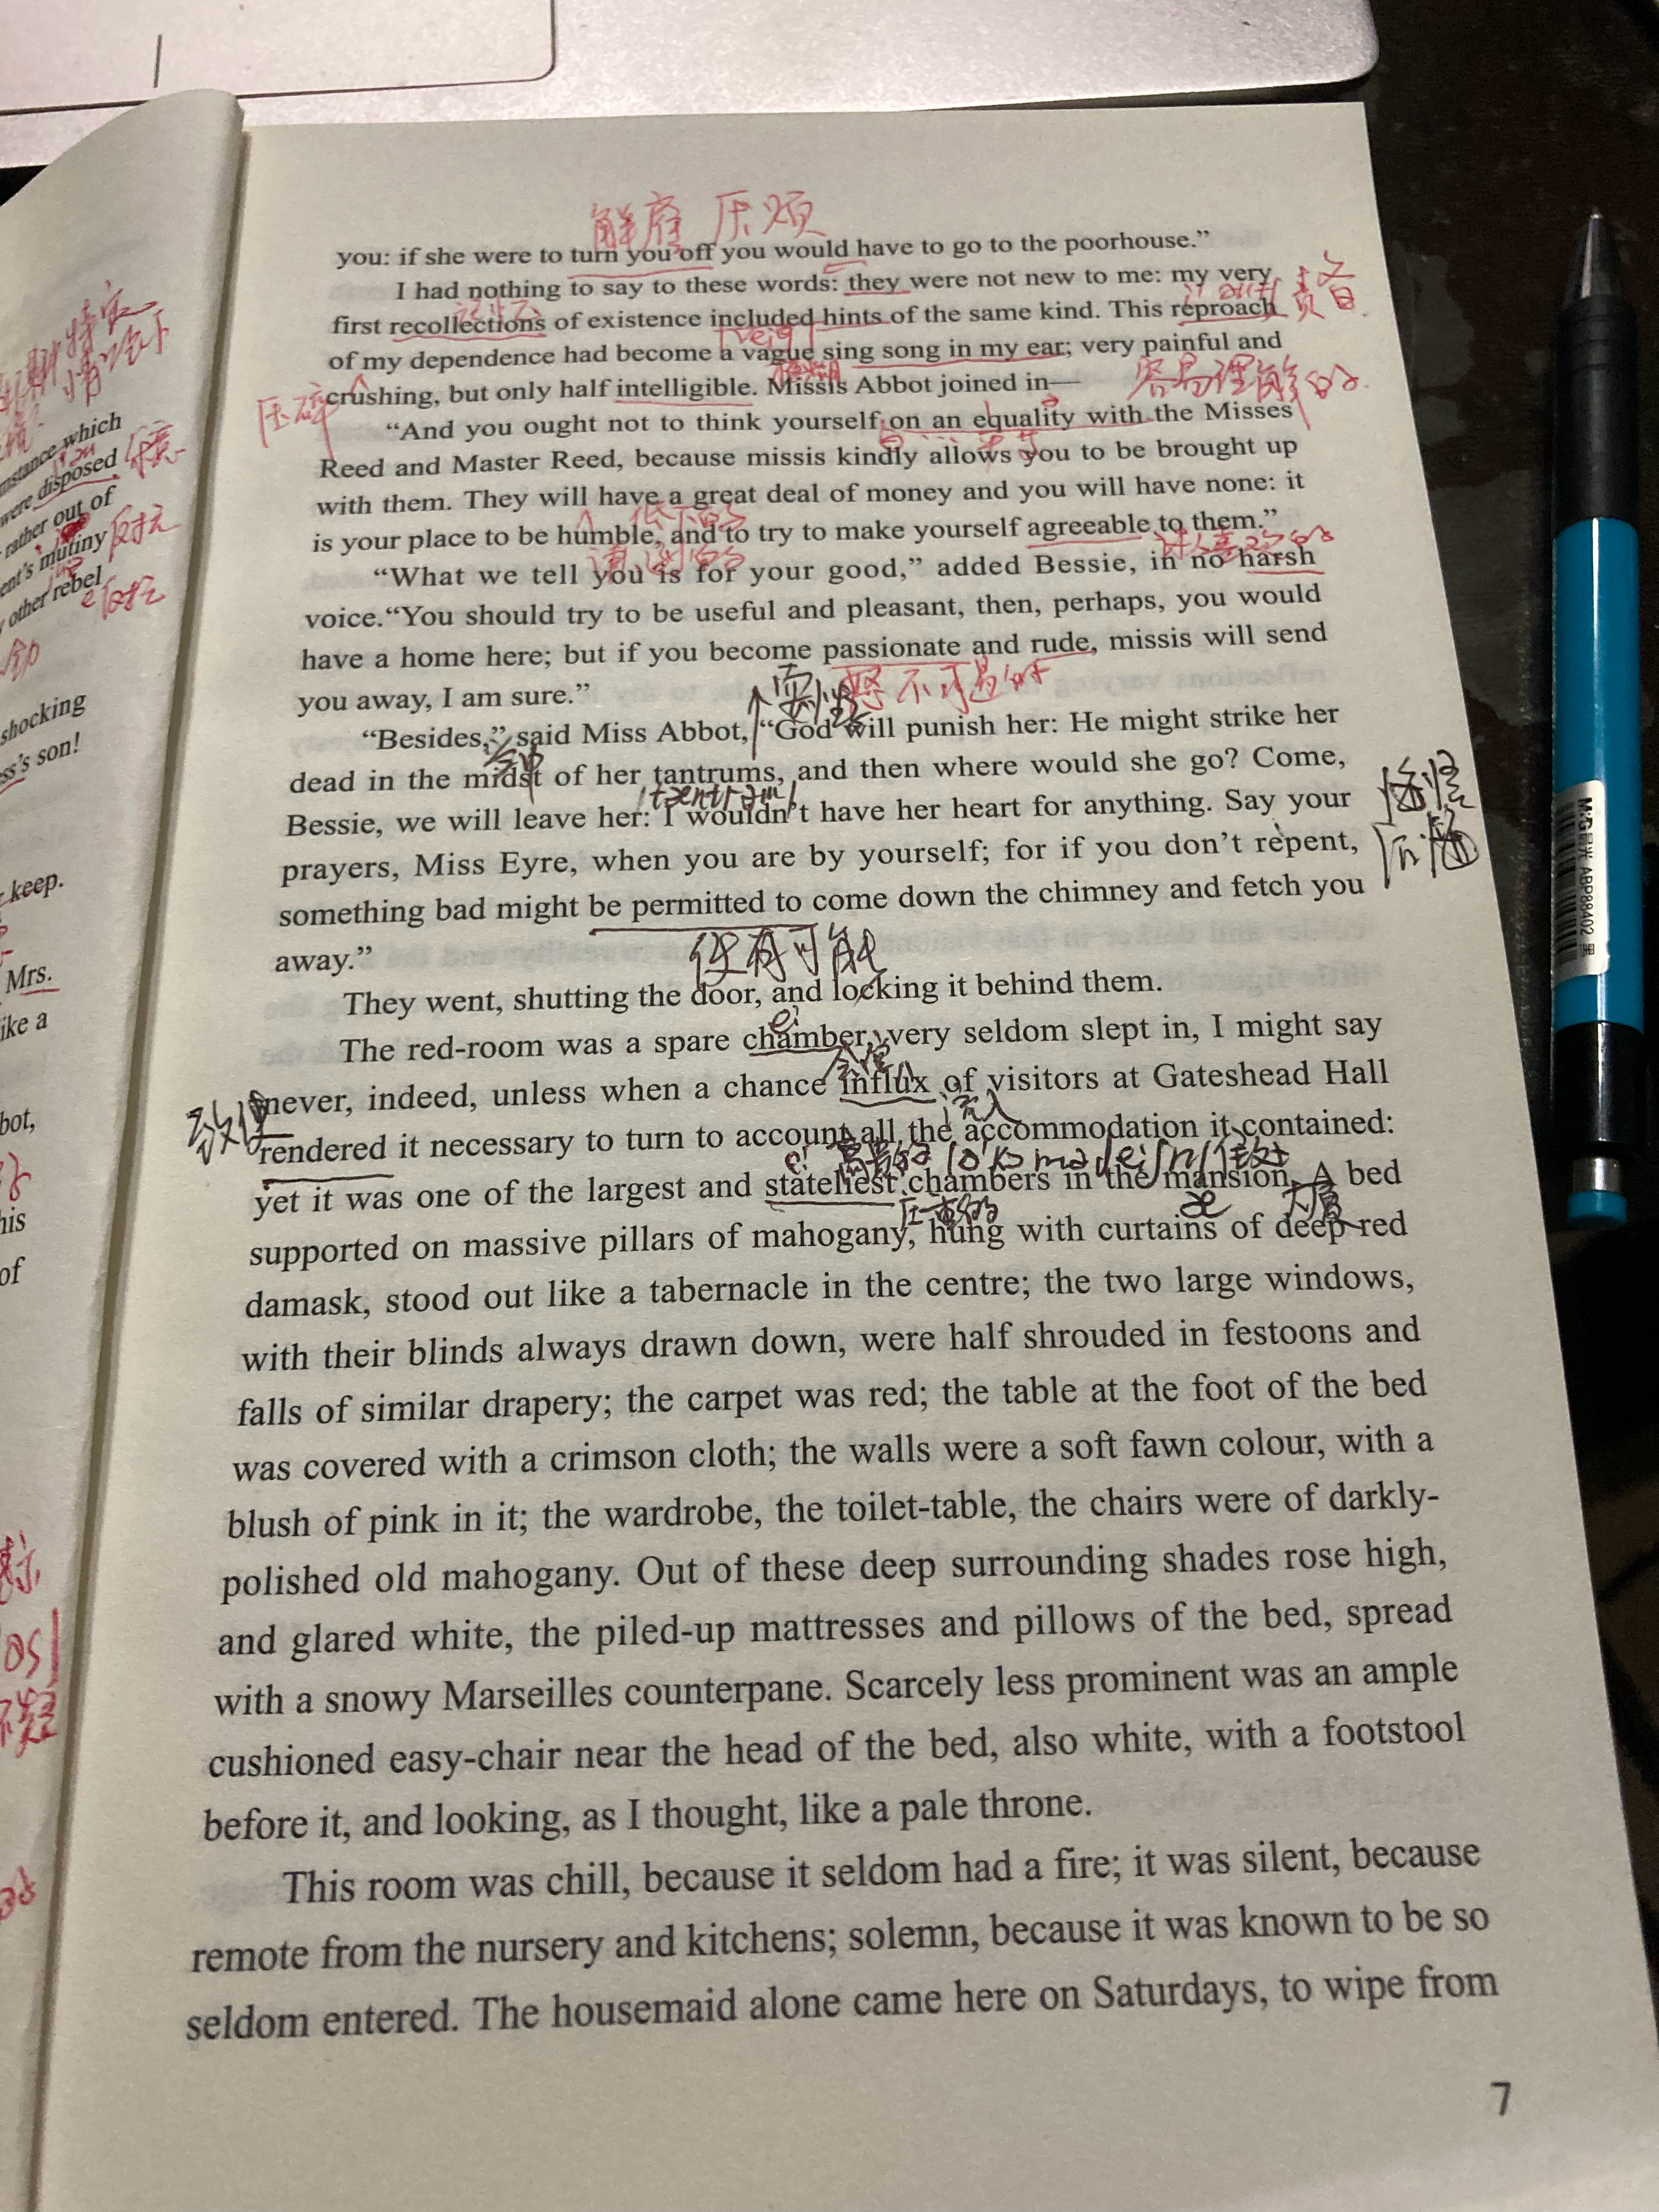 解雇 厌烦
you: if she were to turn you off you would have to go to the poorhouse.”
I had nothing to say to these words: they were not new to me: my very
first recollections of existence included hints of the same kind. This reproach
of my dependence had become a vague sing song in my ear; very painful and
crushing, but only half intelligible. Missis Abbot joined in—
压碎
容易理解的
“And you ought not to think yourself on an equality with the Misses
Reed and Master Reed, because missis kindly allows you to be brought up
with them. They will have a great deal of money and you will have none: it
is your place to be humble, and to try to make yourself agreeable to them.”
“What we tell you is for your good,” added Bessie, in no harsh
voice.“You should try to be useful and pleasant, then, perhaps, you would
have a home here; but if you become passionate and rude, missis will send
you away, I am sure.”
“Besides,” said Miss Abbot, “God will punish her: He might strike her
dead in the midst of her tantrums, and then where would she go? Come,
Bessie, we will leave her: I wouldn’t have her heart for anything. Say your
prayers, Miss Eyre, when you are by yourself; for if you don’t repent,
something bad might be permitted to come down the chimney and fetch you
使有可能
away.”
They went, shutting the door, and locking it behind them.
The red-room was a spare chamber, very seldom slept in, I might say
never, indeed, unless when a chance influx of visitors at Gateshead Hall
流入
致使
rendered it necessary to turn to account all the accommodation it contained:
yet it was one of the largest and stateliest chambers in the mansion. A bed
大厦
supported on massive pillars of mahogany, hung with curtains of deep red
damask, stood out like a tabernacle in the centre; the two large windows,
with their blinds always drawn down, were half shrouded in festoons and
falls of similar drapery; the carpet was red; the table at the foot of the bed
was covered with a crimson cloth; the walls were a soft fawn colour, with a
blush of pink in it; the wardrobe, the toilet-table, the chairs were of darkly-
polished old mahogany. Out of these deep surrounding shades rose high,
and glared white, the piled-up mattresses and pillows of the bed, spread
with a snowy Marseilles counterpane. Scarcely less prominent was an ample
cushioned easy-chair near the head of the bed, also white, with a footstool
before it, and looking, as I thought, like a pale throne.
This room was chill, because it seldom had a fire; it was silent, because
remote from the nursery and kitchens; solemn, because it was known to be so
seldom entered. The housemaid alone came here on Saturdays, to wipe from
7
which
were disposed
rather out of
mutiny
other rebel
shocking
son!
keep.
Mrs.
ike a
of
M&G晨光 ABP88402 黑